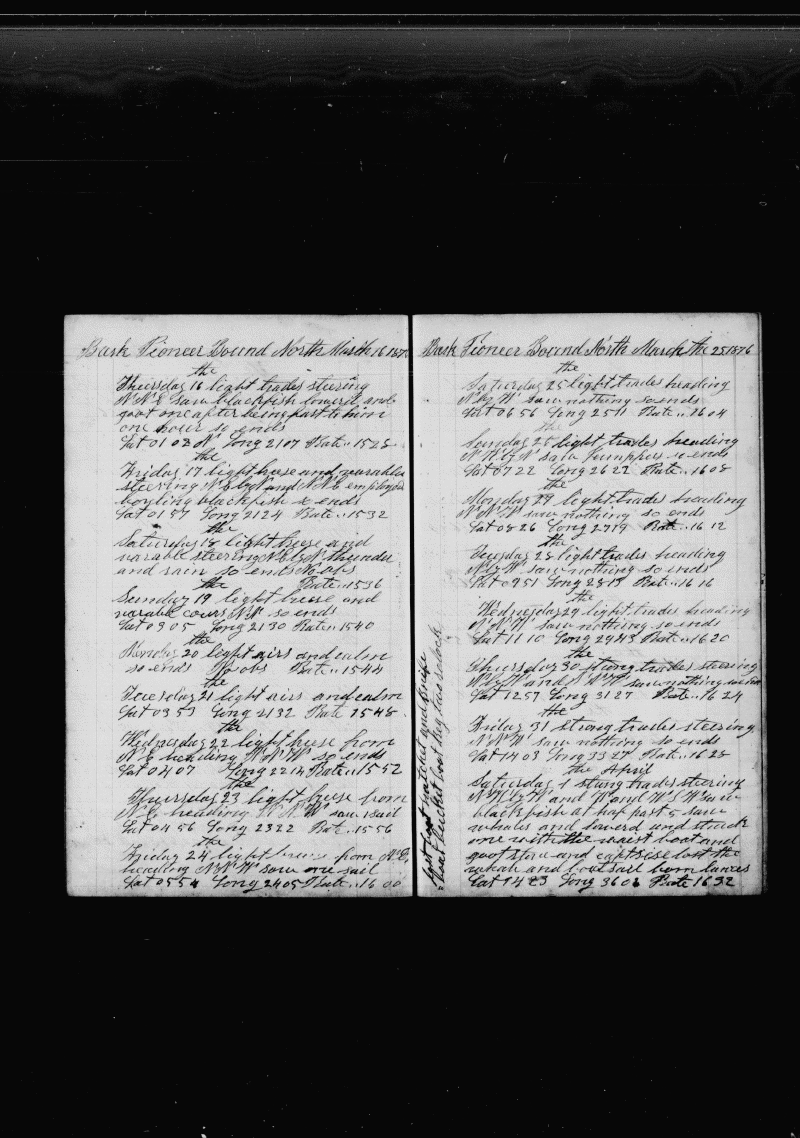 Bark Pioneer Bound North March 16 187
the
Thursday 16 light trades steering
N N E saw blackfish lowerd and
goot one after being fast to him
one hour so ends
Lat 01 02 N Long 2107 Rate .. 1528
the
Friday 17 light breese and varable
steering N E by N and N N E employed
boyling blackfish so ends
Lat 01 57 Long 2124 Rate .. 1532
the
Saturday 18 light breese and
varable steering N E by N thunder
and rain so ends No obs
the Rate .. 1536
Sunday 19 light breese and
varable cours N N so ends
Lat 03 05 Long 2130 Rate .. 1540
the
Monday 20 light airs and calm
so ends No obs Rate .. 1544
the
Tuesday 21 light airs and calm
Lat 03 53 Long 2132 Rate 1548
the
Wednesday 22 light breese from
N E heading N N W so ends
Lat 04 07 Long 2214 Rate .. 1552
the
Thursday 23 light breese from
N E heading N N W saw 1 sail
Lat 04 56 Long 2322 Rate .. 1556
the
Friday 24 light breese from N E
heading N N W saw one sail
Lat 05 54 Long 2405 Rate .. 16 00
Bark Pioneer Bound North March the 25 1876
the
Saturday 25 light trades heading
N by W saw nothing so ends
Lat 06 56 Long 2511 Rate .. 1604
the
Sunday 26 light trades heading
N W by N saw jumppers so ends
Lat 07 22 Long 2622 Rate .. 1608
the
Monday light trades heading
N N W saw nothing so ends
Lat 08 26 Long 2719 Rate .. 16 12
the
Tuesday 28 light trades heading
N by W saw nothing so ends
Lat 09 51 Long 2815 Rate .. 16 16
the
Wednesday 29 light trades heading
N N W saw nothing so ends
Lat 11 10 Long 2943 Rate .. 1620
the
Thursday 30 strung trades steering
N by W and N N W saw nothing
Lat 1257 Long 3127 Rate .. 16 24
the
Friday 31 strong trades steering
N N W saw nothing so ends
Lat 14 03 Long 3327 Rate .. 1628
the April
Saturday 1 stung trades steering
N W by W and W and W S W saw
blackfish at haf past 5 saw
whales and lowerd and struck
one with the waist boat and
goot stove and captsise lost the
whale and boat sail lances
Lat 14 23 Long 3602 Rate 1632
lost boat hatchet one knife
boat bucket boat keg two